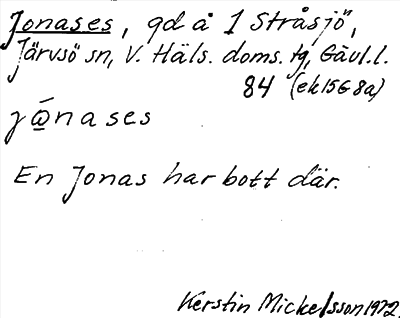 Jonases, gd å 1 Stråsjö,
Järvsö sn, V. Häls. doms. tg, Gävl.l.
84 (ek15G8a)
jώnases
En Jonas har bott där.
Kerstin Mickelsson 1972.